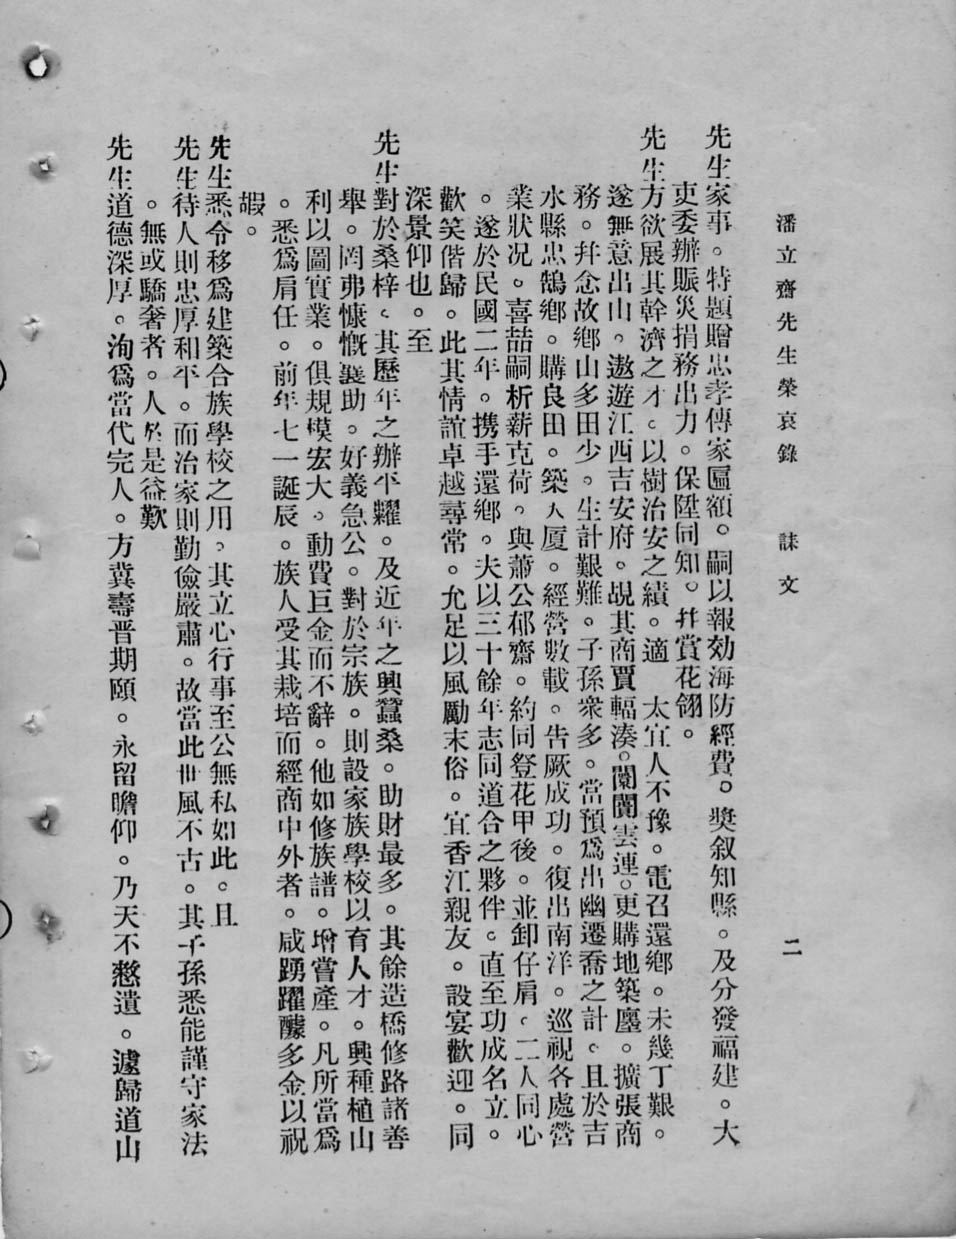 潘立齋先生榮哀錄　誄文　二
先生家事。特題贈忠孝傳家匾額。嗣以報効海防經費。獎叙知縣。及分發福建。大
吏委辦賑災捐務出力。保陞同知。幷賞花翎。
先生方欲展其幹濟之才。以樹治安之績。適　太宜人不豫。電召還鄕。未幾丁艱。
遂無意出山。遨遊江西吉安府。覘其商賈輻湊。闤闠雲連。更購地築廛。擴張商
務。幷念故鄕山多田少。生計艱難。子孫衆多。當預爲出幽遷喬之計。且於吉
水縣忠鵠鄕。購良田。築大厦。經營數載。告厥成功。復出南洋。巡視各處營
業狀況。喜喆嗣析薪克荷。與蕭公郁齋。約同登花甲後。並卸仔肩。二人同心
。遂於民國二年。携手還鄕。夫以三十餘年志同道合之夥伴。直至功成名立。
歡笑偕歸。此其情誼卓越尋常。允足以風勵末俗。宜香江親友。設宴歡迎。同
深景仰也。至
先生對於桑梓。其歷年之辦平糶。及近年之興蠶桑。助財最多。其餘造橋修路諸善
舉。罔弗慷慨襄助。好義急公。對於宗族。則設家族學校以育人才。興種植山
利以圖實業。俱規模宏大。動費巨金而不辭。他如修族譜。增嘗產。凡所當爲
。悉爲肩任。前年七一誕辰。族人受其栽培而經商中外者。咸踴躍醵多金以祝
嘏。
先生悉令移爲建築合族學校之用。其立心行事至公無私如此。且
先生待人則忠厚和平。而治家則勤儉嚴肅。故當此世風不古。其子孫悉能謹守家法
。無或驕奢者。人於是益歎
先生道德深厚。洵爲當代完人。方冀壽晋期頤。永留瞻仰。乃天不憖遺。遽歸道山